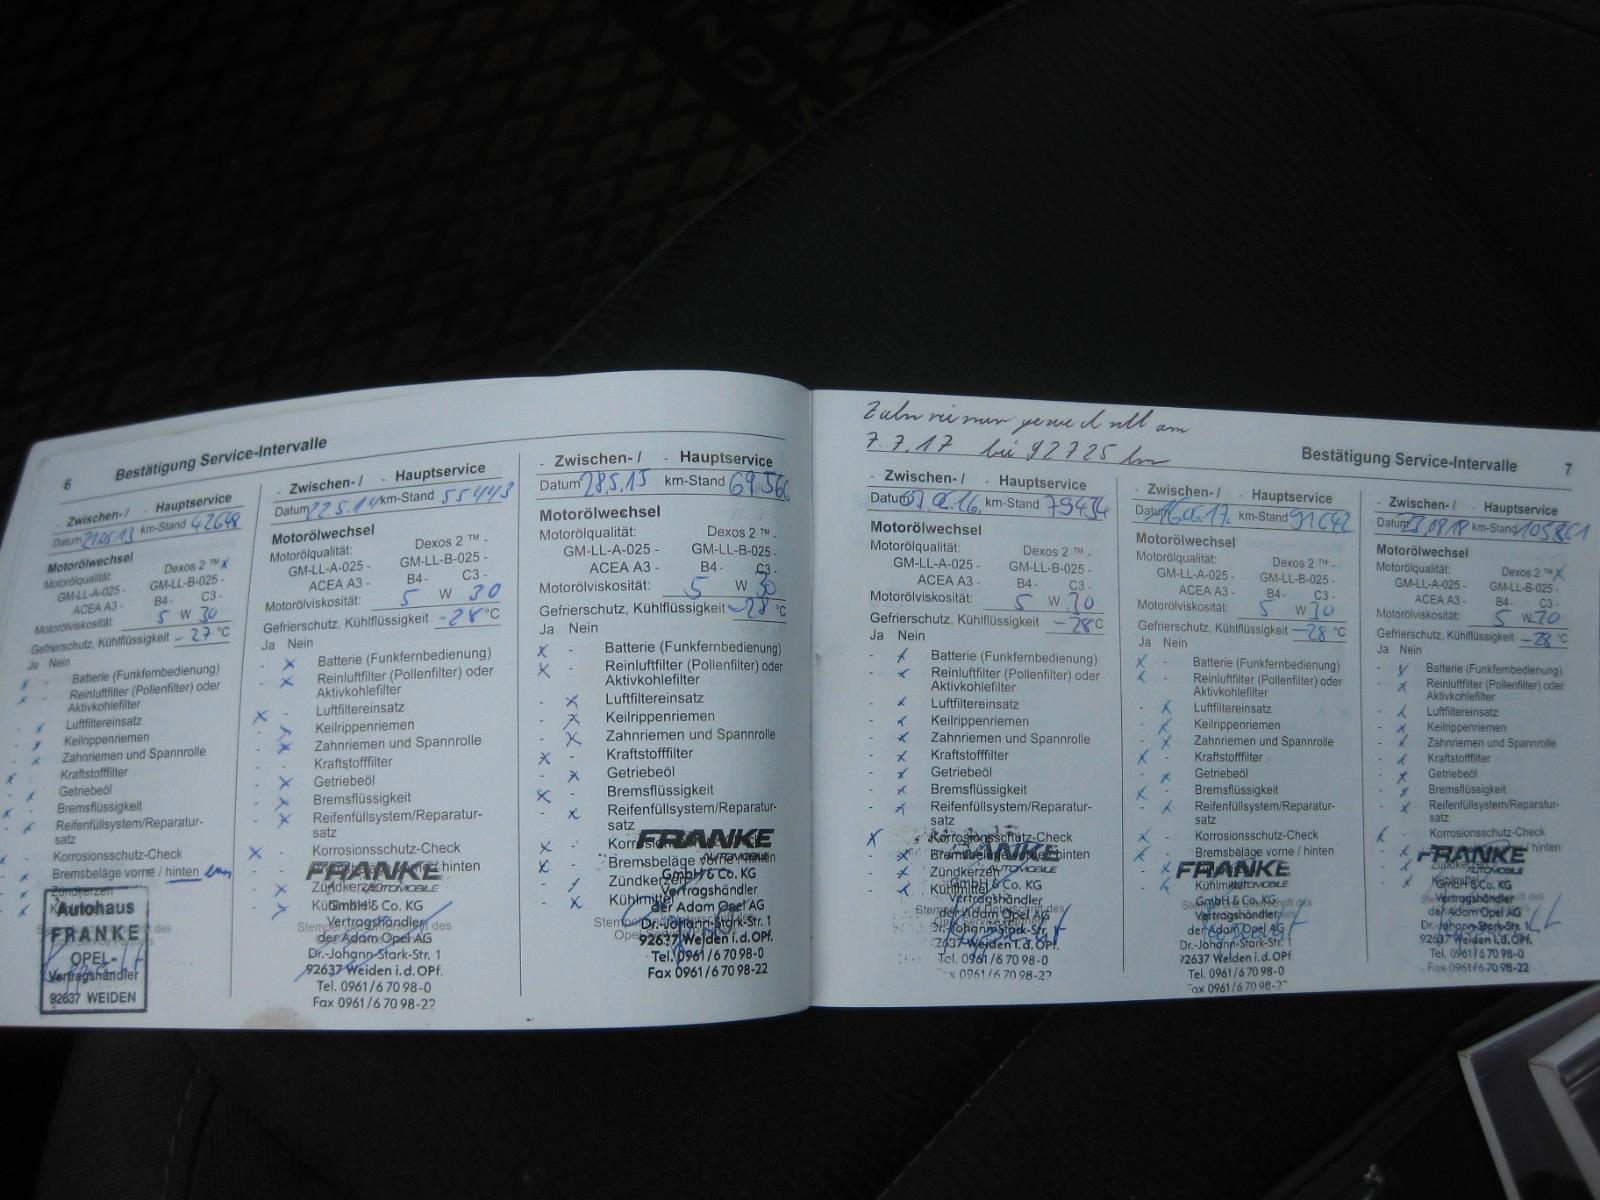 6 Bestätigung Service-Intervalle
- Zwischen- / - Hauptservice
Datum 21.05.13 km-Stand 42648
Motorölwechsel
Motorölqualität: Dexos 2 ™ x
GM-LL-A-025 - GM-LL-B-025 -
ACEA A3 - B4 - C3 -
Motorölviskosität: 5 W 30
Gefrierschutz, Kühlflüssigkeit -27 °C
Ja Nein
x - Batterie (Funkfernbedienung)
x - Reinluftfilter (Pollenfilter) oder
Aktivkohlefilter
- x Luftfiltereinsatz
- x Keilrippenriemen
- x Zahnriemen und Spannrolle
x - Kraftstofffilter
- x Getriebeöl
x - Bremsflüssigkeit
- x Reifenfüllsystem/Reparatur-
satz
x - Korrosionsschutz-Check
x - Bremsbeläge vorne / hinten
- x Zündkerzen
Autohaus
FRANKE
OPEL-
Vertragshändler
92637 WEIDEN
- Zwischen- / - Hauptservice
Datum 22.5.14 km-Stand 55443
Motorölwechsel
Motorölqualität: Dexos 2 ™ -
GM-LL-A-025 - GM-LL-B-025 -
ACEA A3 - B4 - C3 -
Motorölviskosität: 5 W 30
Gefrierschutz, Kühlflüssigkeit -28 °C
Ja Nein
- x Batterie (Funkfernbedienung)
- x Reinluftfilter (Pollenfilter) oder
Aktivkohlefilter
x - Luftfiltereinsatz
- x Keilrippenriemen
- x Zahnriemen und Spannrolle
- Kraftstofffilter
- x Getriebeöl
- x Bremsflüssigkeit
- x Reifenfüllsystem/Reparatur-
satz
x - Korrosionsschutz-Check
hinten
- x Zündkerzen
FRANKE
AUTOMOBILE
GmbH & Co. KG
Vertragshändler
der Adam Opel AG
Dr.-Johann-Stark-Str. 1
92637 Weiden i.d.OPf.
Tel. 0961/6 70 98-0
Fax 0961/6 70 98-22
- Zwischen- / - Hauptservice
Datum 28.5.15 km-Stand 69566
Motorölwechsel
Motorölqualität: Dexos 2 ™ -
GM-LL-A-025 - GM-LL-B-025 -
ACEA A3 - B4 - C3 -
Motorölviskosität: 5 W 30
Gefrierschutz, Kühlflüssigkeit -28 °C
Ja Nein
x - Batterie (Funkfernbedienung)
x - Reinluftfilter (Pollenfilter) oder
Aktivkohlefilter
- x Luftfiltereinsatz
- x Keilrippenriemen
- x Zahnriemen und Spannrolle
x - Kraftstofffilter
- x Getriebeöl
x - Bremsflüssigkeit
- x Reifenfüllsystem/Reparatur-
satz
x -
x - Bremsbeläge vorne / hinten
- x Zündkerzen
- x Kühlmittel
FRANKE
AUTOMOBILE
GmbH & Co. KG
Vertragshändler
der Adam Opel AG
Dr.-Johann-Stark-Str. 1
92637 Weiden i.d.OPf.
Tel. 0961/6 70 98-0
Fax 0961/6 70 98-22
Zahnriemen gewechselt am
7.7.17 bei 92725 km
Bestätigung Service-Intervalle 7
- Zwischen- / - Hauptservice
Datum km-Stand 79454
Motorölwechsel
Motorölqualität: Dexos 2 ™ -
GM-LL-A-025 - GM-LL-B-025 -
ACEA A3 - B4 - C3 -
Motorölviskosität: 5 W 30
Gefrierschutz, Kühlflüssigkeit -28 °C
Ja Nein
- x Batterie (Funkfernbedienung)
- x Reinluftfilter (Pollenfilter) oder
Aktivkohlefilter
- x Luftfiltereinsatz
- x Keilrippenriemen
- x Zahnriemen und Spannrolle
- x Kraftstofffilter
- x Getriebeöl
- x Bremsflüssigkeit
- x Reifenfüllsystem/Reparatur-
satz
x Korrosionsschutz-Check
- x Bremsbeläge hinten
- x Zündkerzen
- x Kühlmittel
FRANKE
GmbH & Co. KG
Vertragshändler
der Adam Opel AG
Dr.-Johann-Stark-Str. 1
92637 Weiden i.d.OPf.
Tel. 0961/6 70 98-0
Fax 0961/6 70 98-22
- Zwischen- / - Hauptservice
Datum km-Stand 91642
Motorölwechsel
Motorölqualität: Dexos 2 ™ -
GM-LL-A-025 - GM-LL-B-025 -
ACEA A3 - B4 - C3 -
Motorölviskosität: 5 W 30
Gefrierschutz, Kühlflüssigkeit -28 °C
Ja Nein
x - Batterie (Funkfernbedienung)
x - Reinluftfilter (Pollenfilter) oder
Aktivkohlefilter
- x Luftfiltereinsatz
- x Keilrippenriemen
- x Zahnriemen und Spannrolle
x - Kraftstofffilter
- x Getriebeöl
x - Bremsflüssigkeit
- x Reifenfüllsystem/Reparatur-
satz
x - Korrosionsschutz-Check
x - Bremsbeläge vorne / hinten
- x
- x Kühlmittel
FRANKE
AUTOMOBILE
GmbH & Co. KG
Vertragshändler
der Adam Opel AG
Dr.-Johann-Stark-Str. 1
92637 Weiden i.d.OPf.
Tel. 0961/6 70 98-0
Fax 0961/6 70 98-2
- Zwischen- / - Hauptservice
Datum 23.08.18 km-Stand 105861
Motorölwechsel
Motorölqualität: Dexos 2 ™ x
GM-LL-A-025 - GM-LL-B-025 -
ACEA A3 - B4 - C3 -
Motorölviskosität: 5 W 30
Gefrierschutz, Kühlflüssigkeit -28 °C
Ja Nein
- x Batterie (Funkfernbedienung)
- x Reinluftfilter (Pollenfilter) oder
Aktivkohlefilter
- x Luftfiltereinsatz
- x Keilrippenriemen
- x Zahnriemen und Spannrolle
- x Kraftstofffilter
- x Getriebeöl
- x Bremsflüssigkeit
- x Reifenfüllsystem/Reparatur-
satz
x - Korrosionsschutz-Check
hinten
FRANKE
GmbH & Co. KG
Vertragshändler
der Adam Opel AG
Dr.-Johann-Stark-Str. 1
92637 Weiden i.d.OPf.
Tel. 0961/6 70 98-0
Fax 0961/6 70 98-22